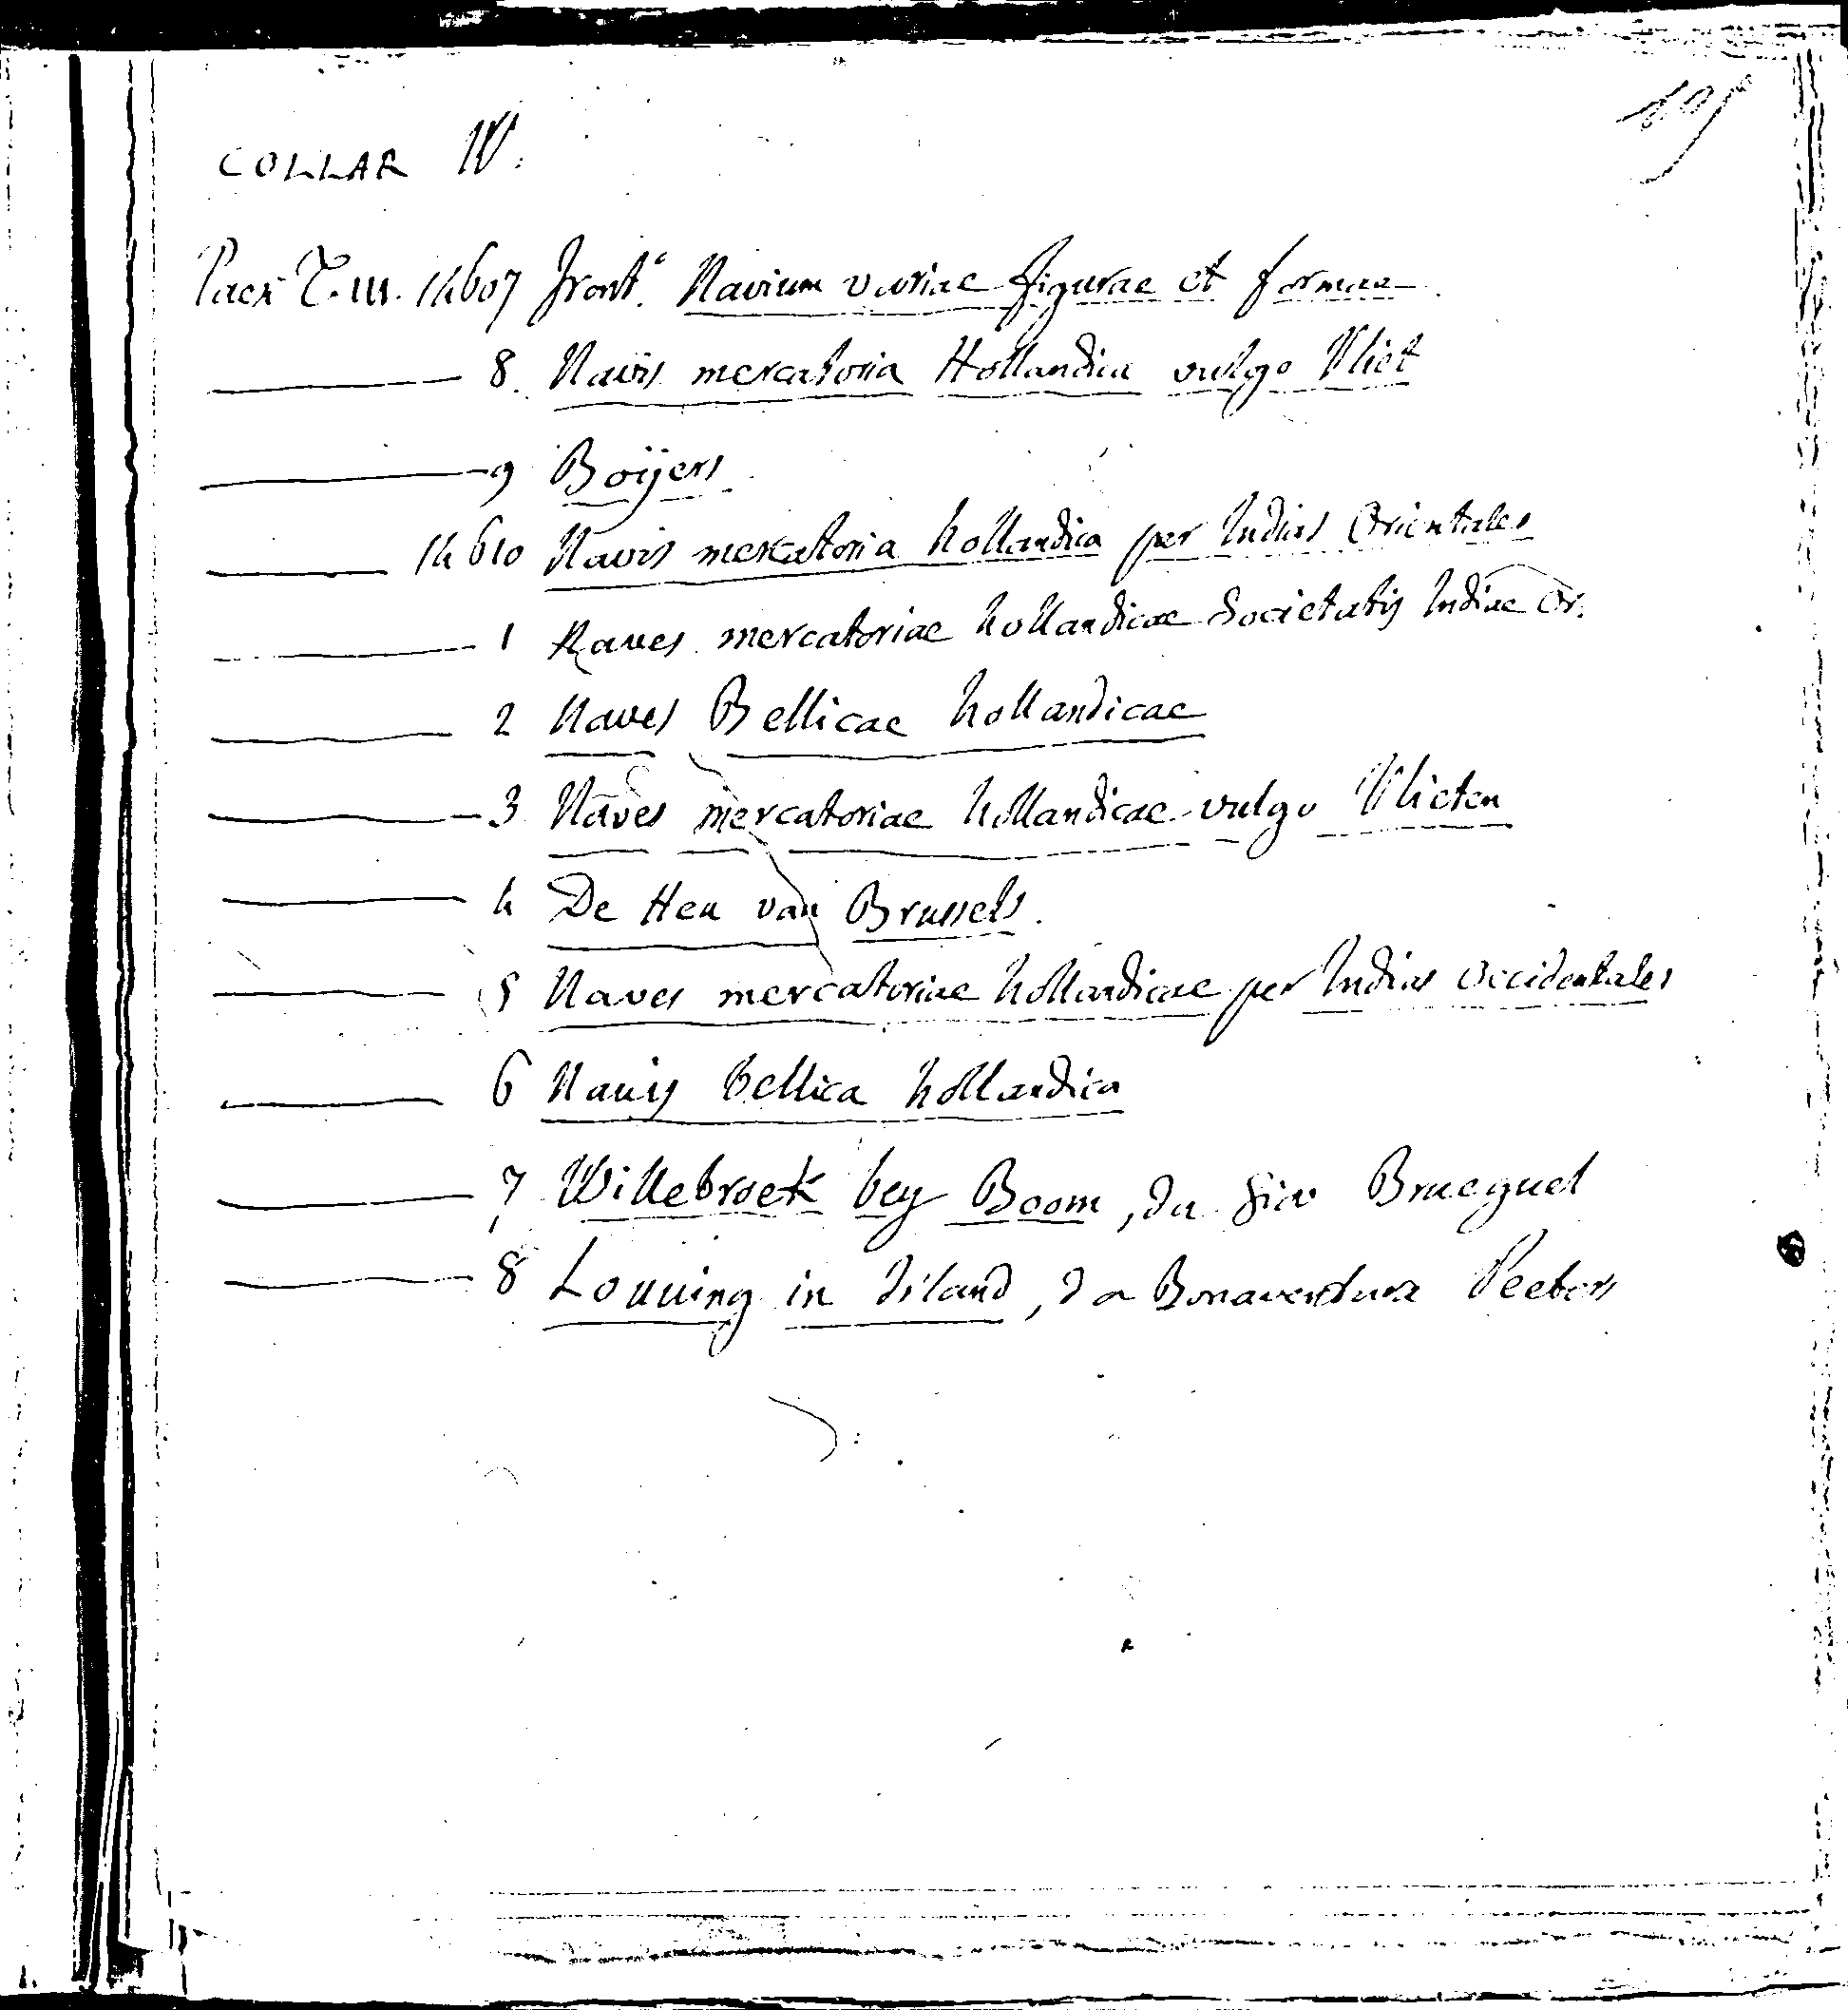 COLLAR IV.
Paesi T. III. 14607 front.e Navium variae figurae et formae
8. Navis mercatoria Hollandica vulgo Vliet
9 Boijers
14610 Navis mercatoria hollandica per Indias Orientales
1 Naves mercatoriae hollandicae Societatis Indiae Or.
2 Naves Bellicae hollandicae
3 Naves mercatoriae hollandicae vulgo Vlieten
4 De Heu van Brussels.
5 Naves mercatoriae hollandicae per Indias occidentales
6 Navis bellica hollandica
7 Willebroek bey Boom, da Gio Brueguel
8 in Island, da Bonaventura Peeters